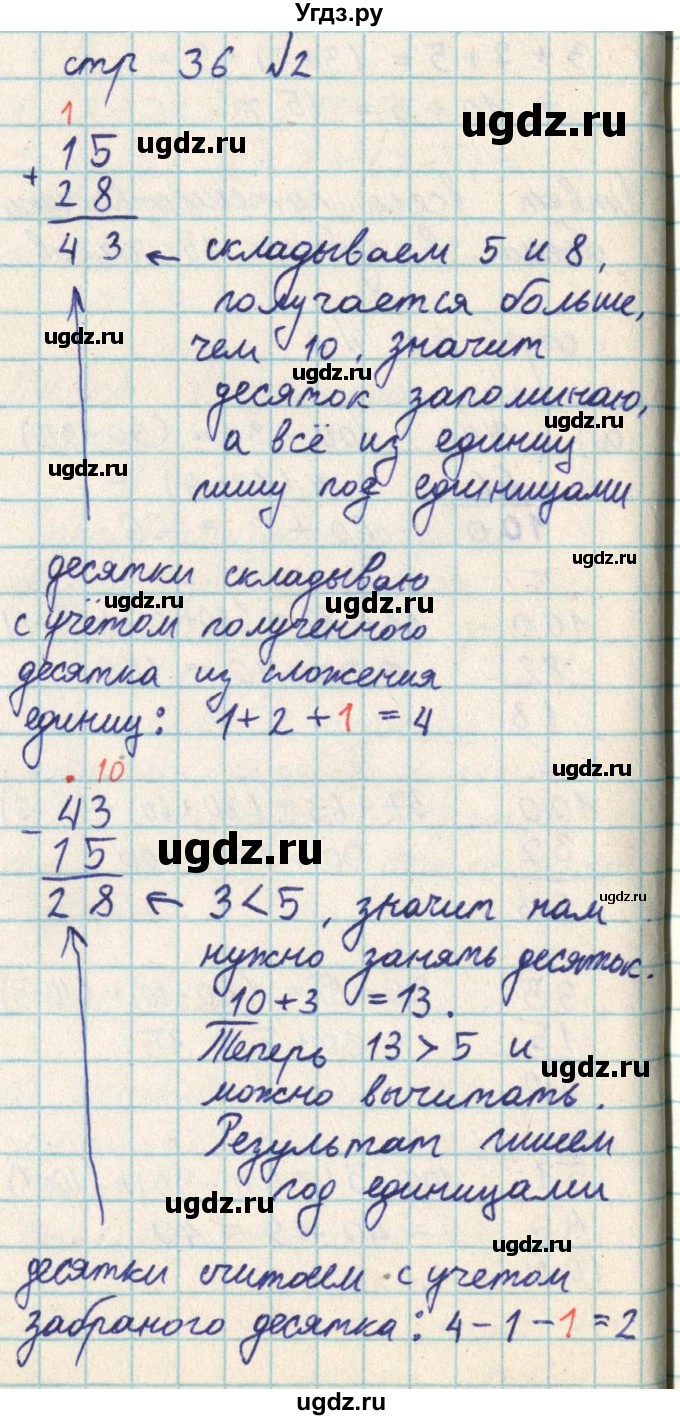 Угдз.ру
стр 36 №2
ugdz.ru
1
ugdz.ru
15
+
28
43 ← складываем 5 и 8,
получается больше,
ugdz.ru
чем 10, значит
ugdz.ru
десяток запоминаю,
ugdz.ru
а всё из единиц
ugdz.ru
пишу под единицами
ugdz.ru
десятки складываю
ugdz.ru
ugdz.ru
с учётом полученного
десятка из сложения
единиц: 1+2+1=4
ugdz.ru
. 10
43
-
15
ugdz.ru
ugdz.ru
28 ← 3<5, значит нам
нужно занять десяток.
10+3 =13.
Теперь 13>5 и
ugdz.ru
можно вычитать.
Результат пишем
под единицами
ugdz.ru
ugdz.ru
десятки считаем с учетом
забраного десятка: 4-1-1=2
ugdz.ru